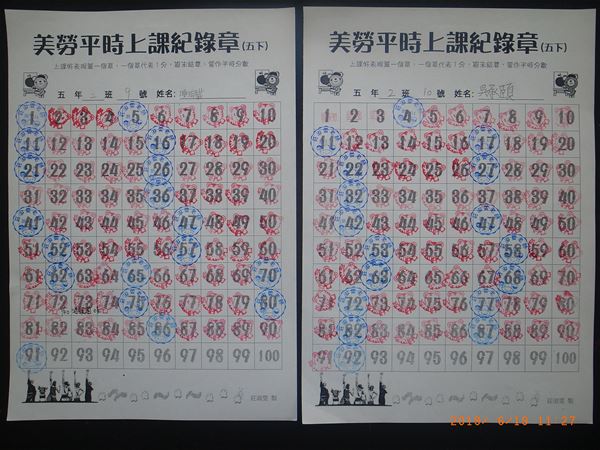 美勞平時上課紀錄章(五下)
上課好表現蓋一個章，一個章代表1分，期末結算，當作平時分數
五 年 二 班 9 號 姓名:
1 2 3 4 5 6 7 8 9 10
11 12 13 14 15 16 17 18 19 20
21 22 23 24 25 26 27 28 29 30
31 32 33 34 35 36 37 38 39 40
41 42 43 44 45 46 47 48 49 50
51 52 53 54 55 56 57 58 59 60
61 62 63 64 65 66 67 68 69 70
71 72 73 74 75 76 77 78 79 80
81 82 83 84 85 86 87 88 89 90
91 92 93 94 95 96 97 98 99 100
莊淑雯 製
美勞平時上課紀錄章(五下)
上課好表現蓋一個章，一個章代表1分，期末結算，當作平時分數
五 年 2 班 10 號 姓名: 吳承頤
1 2 3 4 5 6 7 8 9 10
11 12 13 14 15 16 17 18 19 20
21 22 23 24 25 26 27 28 29 30
31 32 33 34 35 36 37 38 39 40
41 42 43 44 45 46 47 48 49 50
51 52 53 54 55 56 57 58 59 60
61 62 63 64 65 66 67 68 69 70
71 72 73 74 75 76 77 78 79 80
81 82 83 84 85 86 87 88 89 90
91 92 93 94 95 96 97 98 99 100
莊淑雯 製
2013/ 6/19 11:27